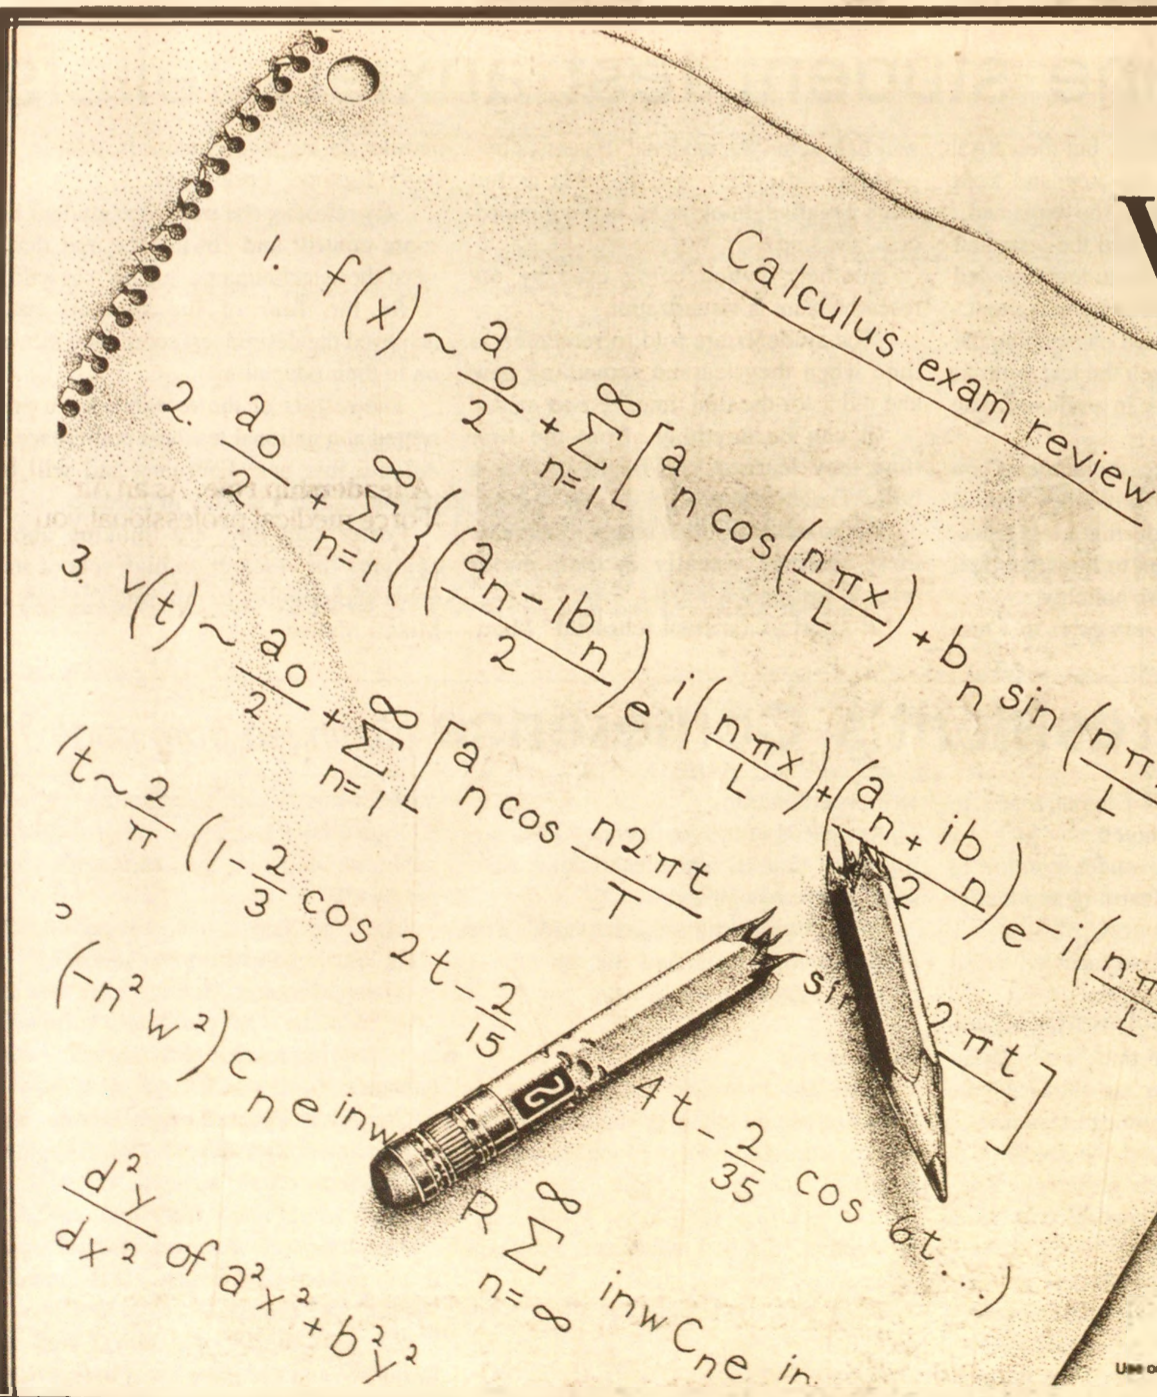 Calculus exam review
1. f(x) ~ a₀/2 + ∑ n=1 ∞ [a n cos (nπx/L) + b n sin (nπ/L
2. a₀/2 + ∑ n=1 ∞ { (a n - 1b n/2) e i (nπx/L) + (a n + ib n/2) e -i (nπ/L
3. v(t) ~ a₀/2 + ∑ n=1 ∞ [a n cos n2πt/T sin 2πt]
t ~ 2/π (1 - 2/3 cos 2t - 2/15 4t - 2/35 cos 6t...)
(-n² w²) C n e inw
R ∑ n=∞ ∞ inw C n e in
d²y/dx² of a²x² + b²y²
2